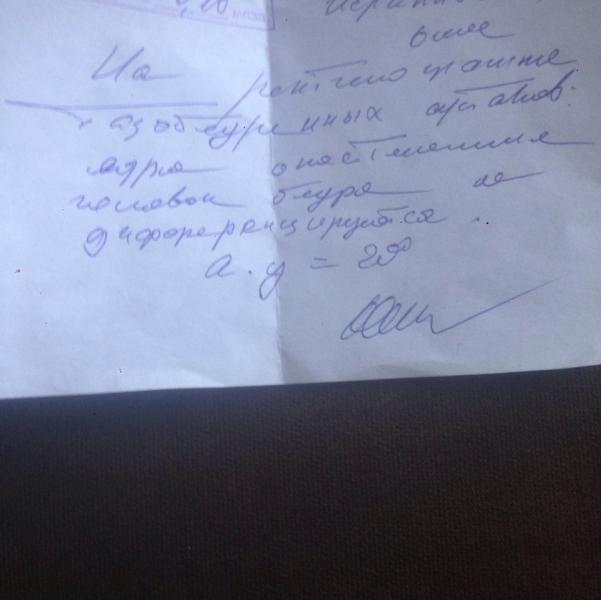 На рентгенограмме
тазобедренных суставов:
ядра окостенения
головок бедра не
дифференцируются.
а.у = 28°